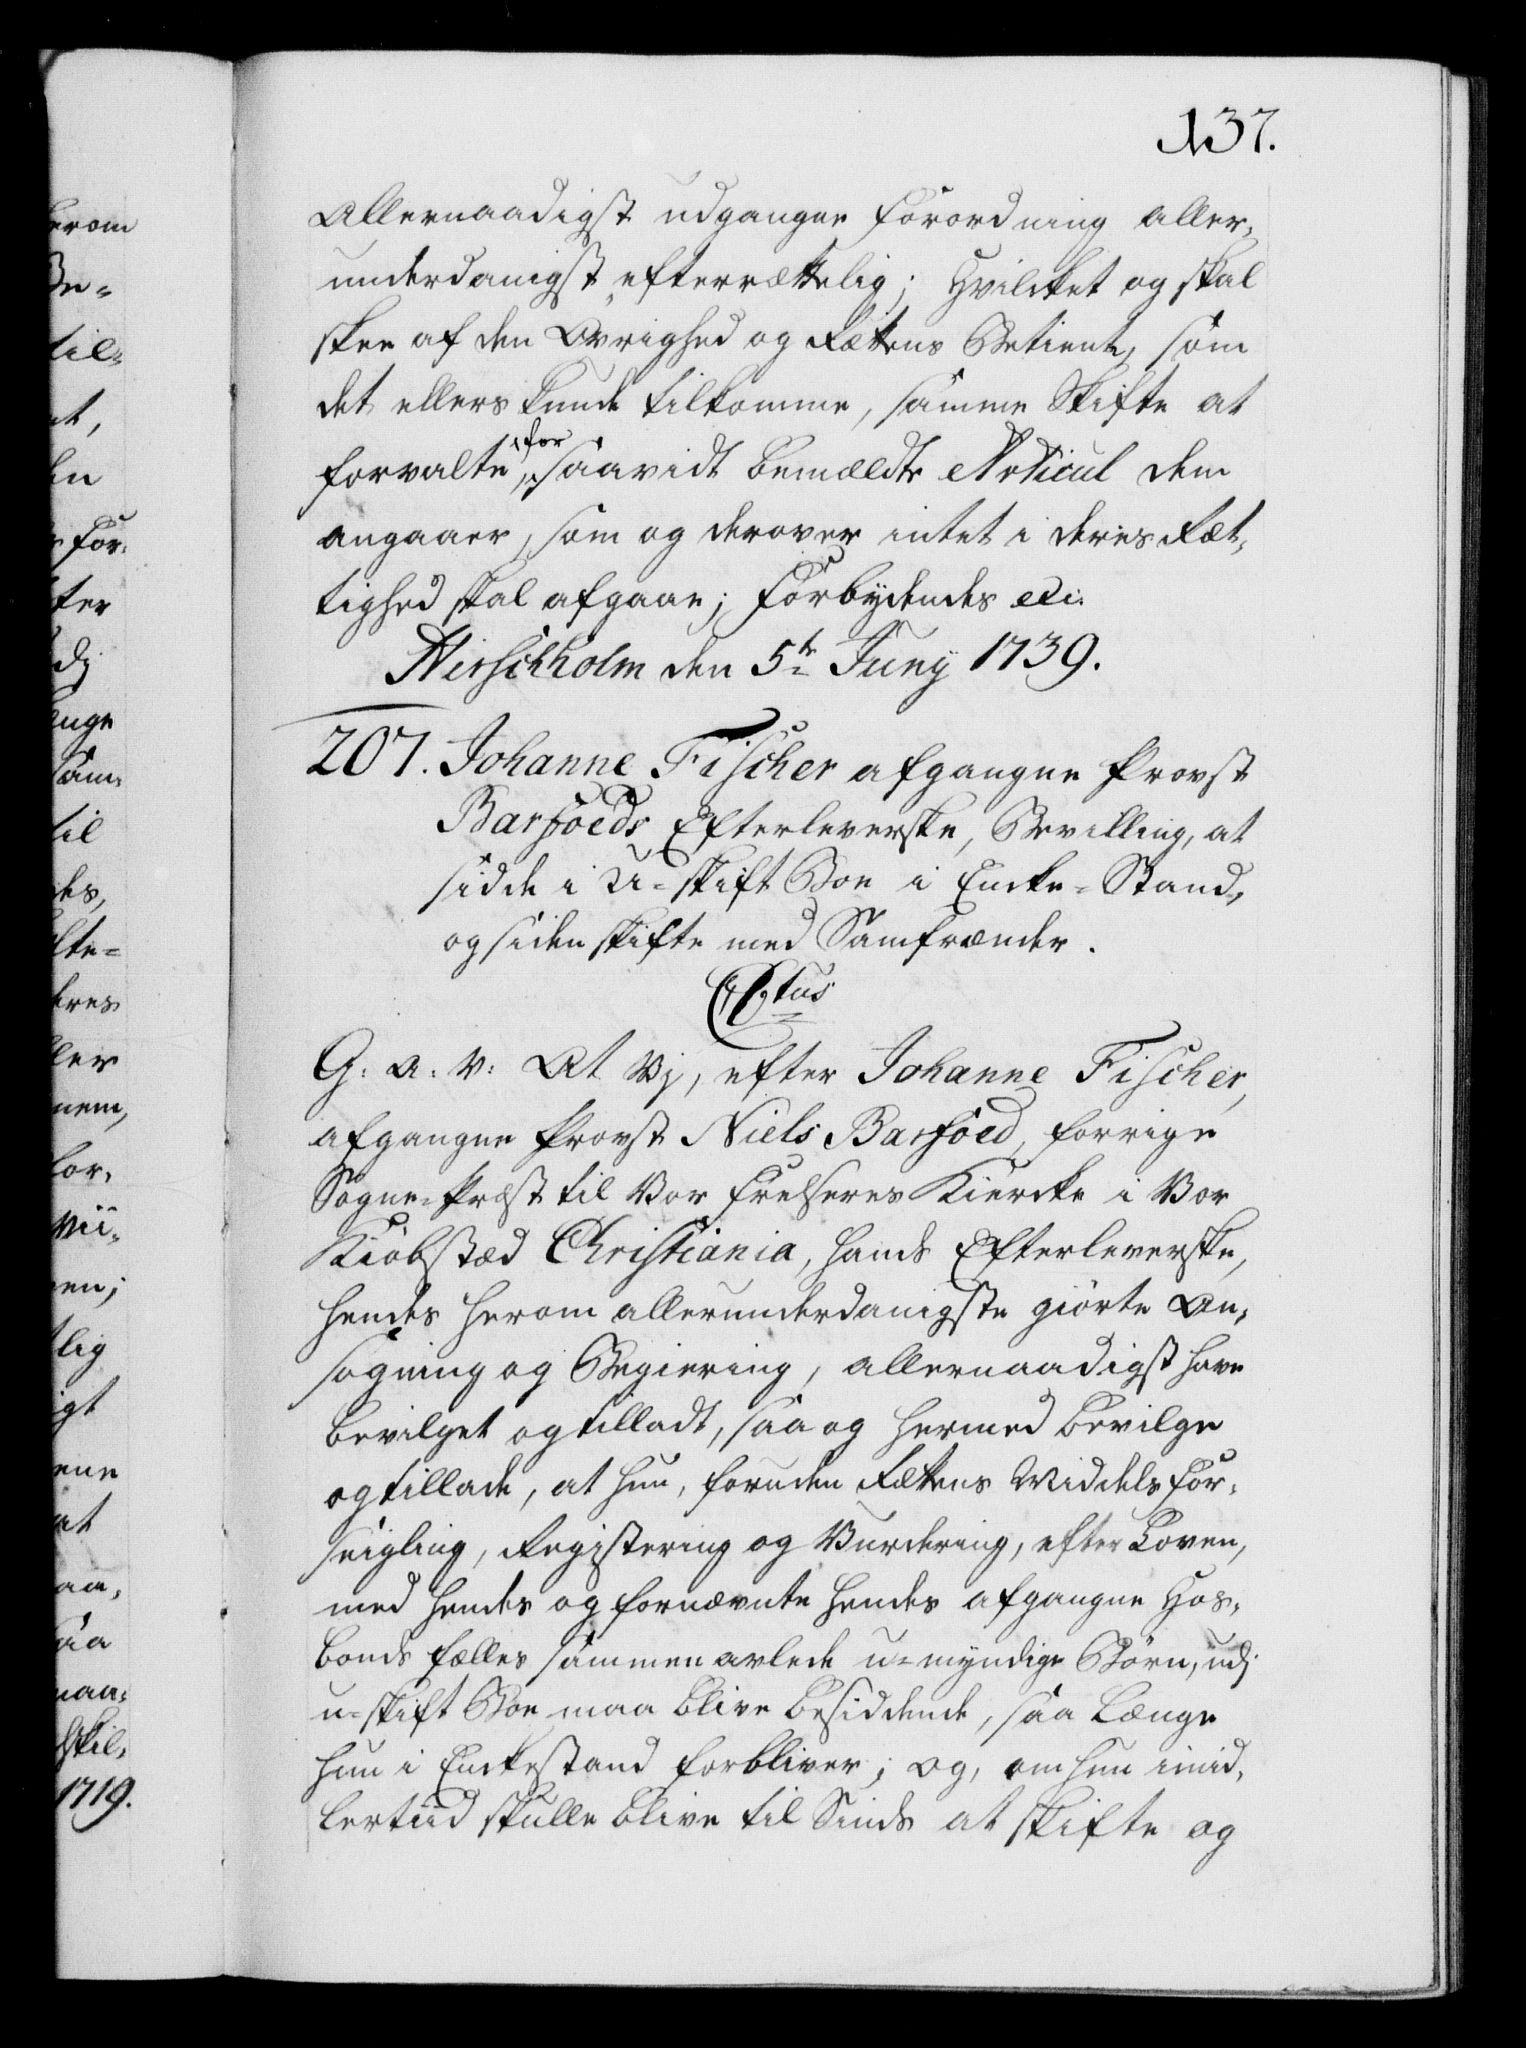 137.
Allernaadigst udgangne Forordning aller-
underdanigst efterrættelig; Hvilcket og skal
skee af den Øvrighed og Rettens Betiente, som
det ellers kunde tilkomme, samme Skifte at
forvalte, for saavidt bemældte Articul dem
angaaer, som og derover intet i deres Ræt-
tighed skal afgaae; Forbydendes etc.
Hirschholm den 5te Juny 1739.
207. Johanne Fischer afgangne Provst
Barfoeds Efterleverske, Bevilling, at
sidde i U-skift Boe i Encke-Stand,
og siden skifte med Samfrænder.
C6tus
G: A: V: At Vj, efter Johanne Fischer,
afgangne Provst Niels Barfoed, forrige
Sogne-Præst til Vor Frelseres Kiercke i Vor
Kiøbstæd Christiania, hands Efterleverske,
hendes herom allerunderdanigste giorte An-
søgning og Begiering, allernaadigst have
bevilget og tilladt, saa og hermed bevilge
og tillade, at hun, foruden Rettens Middels For-
seigling, Registering og Vurdering, efter Loven,
med hendes og fornævnte hendes afgangne Hos-
bonds fælles sammen avlede u-myndige Børn, udj
u-skift Boe maa blive besiddende, saa længe
hun i Enckestand forbliver; og, om hun imid-
lertiid skulle blive til Sinds at skifte og